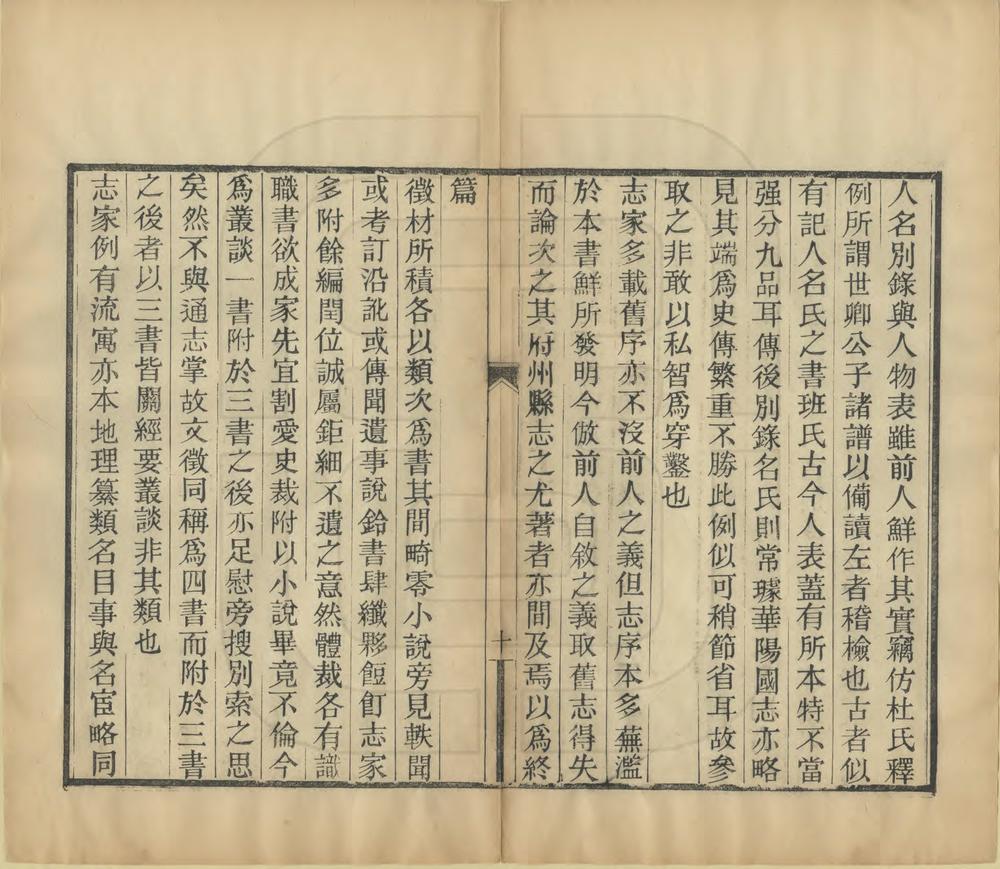 人名別錄與人物表雖前人鮮作其實竊仿杜氏釋
例所謂世卿公子諸譜以備讀左者稽檢也古者似
有記人名氏之書班氏古今人表蓋有所本特不當
强分九品耳傳後別錄名氏則常璩華陽國志亦略
見其端爲史傳繁重不勝此例似可稍節省耳故參
取之非敢以私智爲穿鑿也
志家多載舊序亦不沒前人之義但志序本多蕪濫
於本書鮮所發明今倣前人自敘之義取舊志得失
而論次之其府州縣志之尤著者亦間及焉以爲終
十一
篇
徵材所積各以類次爲書其間畸零小說旁見軼聞
或考訂沿訛或傳聞遺事說鈴書肆纖夥餖飣志家
多附餘編閏位誠屬鉅細不遺之意然體裁各有識
職書欲成家先宜割愛史裁附以小說畢竟不倫今
爲叢談一書附於三書之後亦足慰旁搜別索之思
矣然不與通志掌故文徵同稱爲四書而附於三書
之後者以三書皆關經要叢談非其類也
志家例有流寓亦本地理纂類名目事與名宦略同